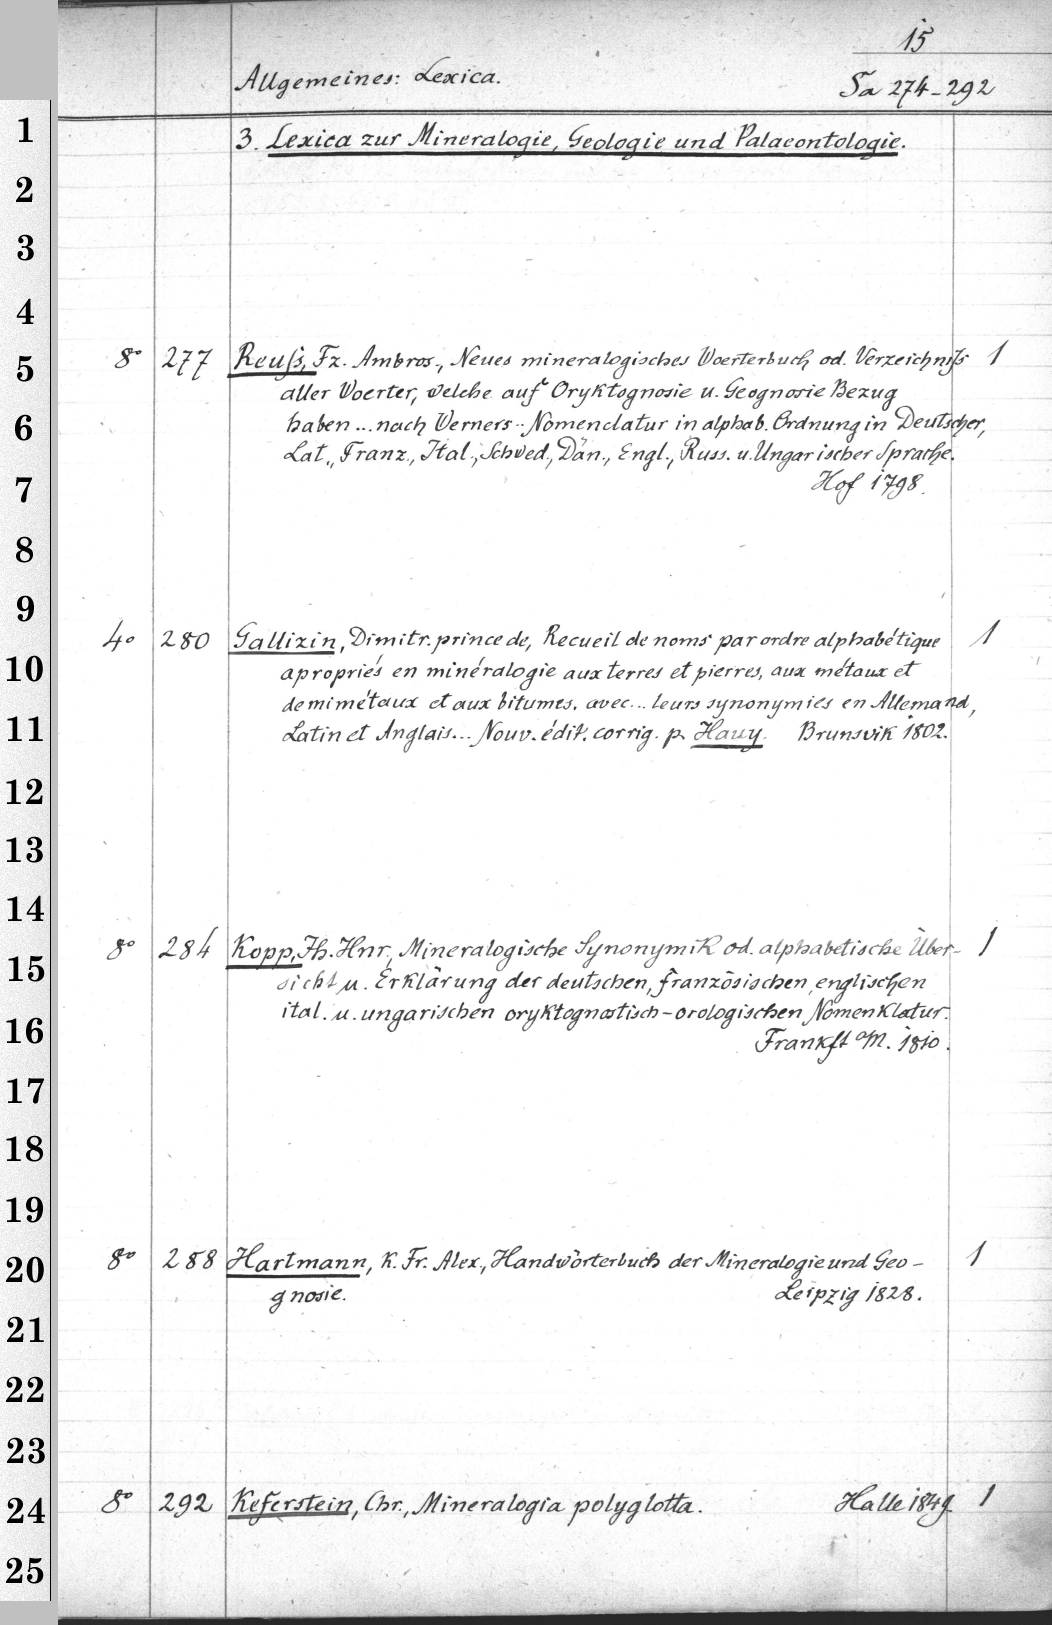 15
Allgemeines: Lexica.
Sa 274-292
3. Lexica zur Mineralogie, Geologie und Palaeontologie.
8° 277 Reuſs, Fz. Ambros., Neues mineralogisches Woerterbuch od. Verzeichniſs 1
aller Woerter, welche auf Oryktognosie u. Geognosie Bezug
haben ... nach Werners .. Nomenclatur in alphab. Ordnung in Deutscher,
Lat., Franz., Ital., Schwed., Dän., Engl., Russ. u. Ungarischer Sprache.
Hof 1798.
4° 280 Gallizin, Dimitr. prince de, Recueil de noms par ordre alphabétique 1
apropriés en minéralogie aux terres et pierres, aux métaux et
demimétaux et aux bitumes. avec... leurs synonymies en Allemand,
Latin et Anglais... Nouv. édit. corrig. p. Hauy. Brunsvik 1802.
8° 284 Kopp, Jh. Hnr., Mineralogische Synonymik od. alphabetische Über- 1
sicht u. Erklärung der deutschen, französischen, englischen
ital. u. ungarischen oryktognostisch-orologischen Nomenklatur.
Frankft a/M. 1810.
8° 288 Hartmann, K. Fr. Alex., Handwörterbuch der Mineralogie und Geo- 1
gnosie. Leipzig 1828.
8° 292 Keferstein, Chr., Mineralogia polyglotta. Halle 1849 1
1
2
3
4
5
6
7
8
9
10
11
12
13
14
15
16
17
18
19
20
21
22
23
24
25